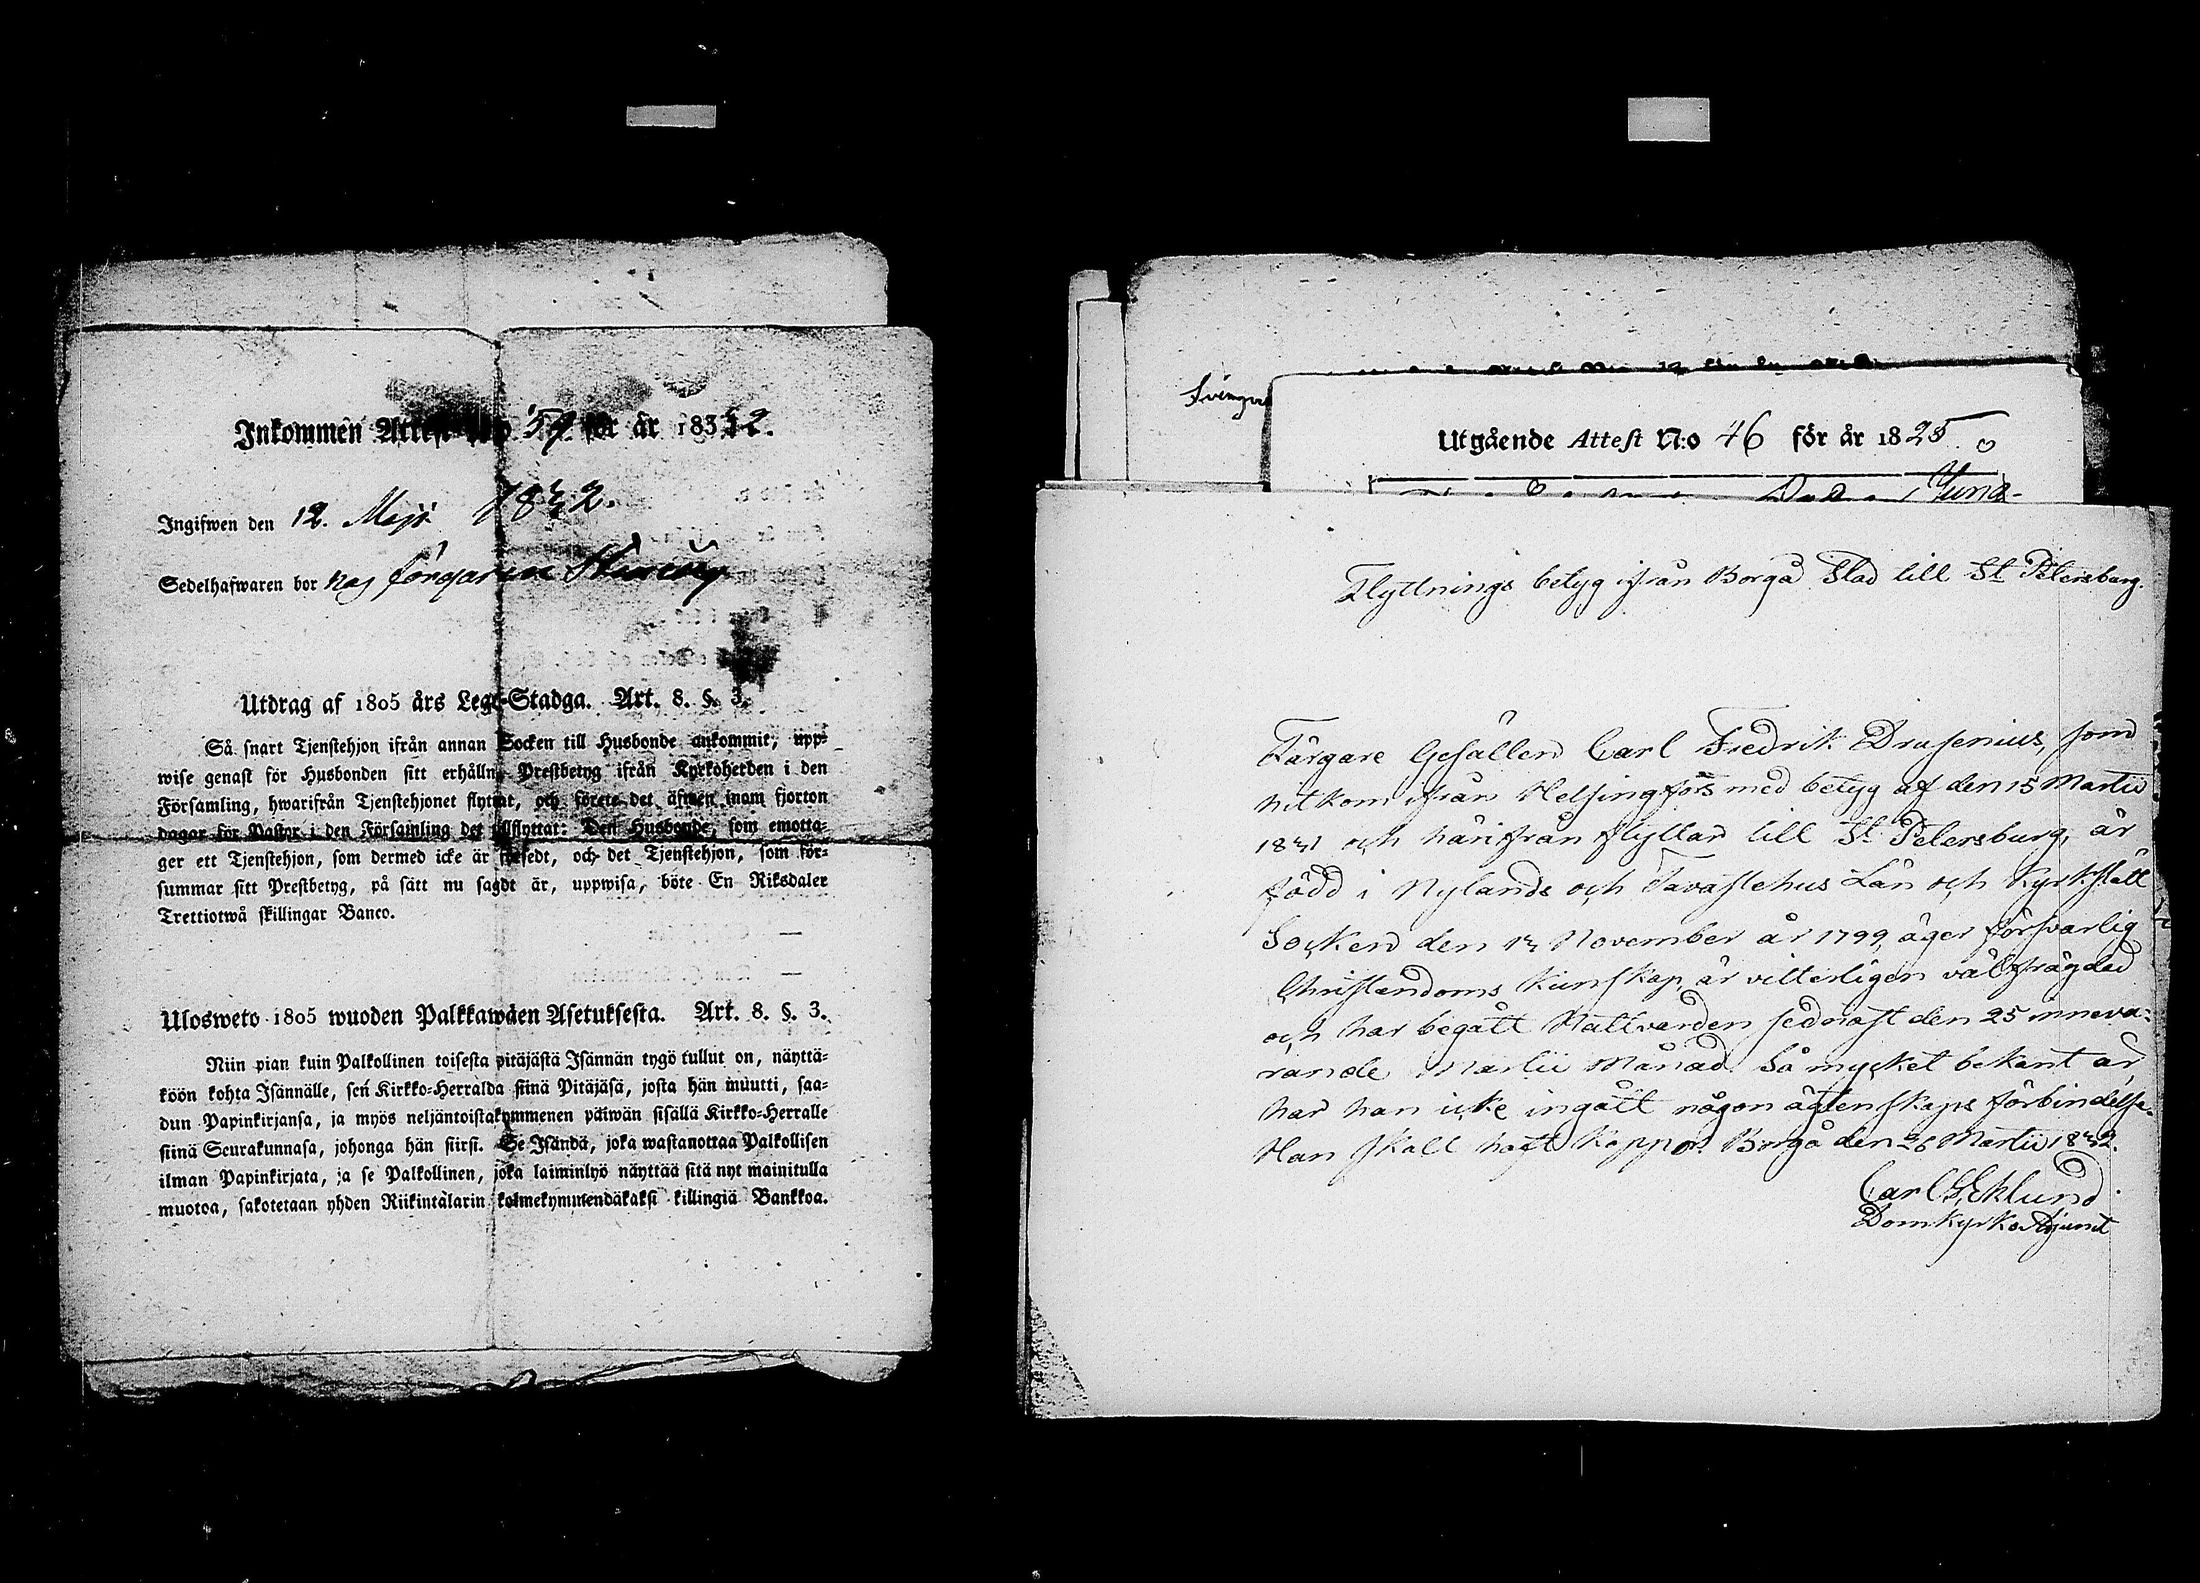 Inkommen Attest N:o 59 för år 1832.
Ingifwen den 12. Maji 1832.
Sedelhafwaren bor hos färgaren
Utdrag af 1805 års Lego-Stadga. Art. 8. §. 3.
Så snart Tjenstehjon ifrån annan Socken till Husbonde ankommit, upp-
wise genast för Husbonden sitt erhållne Prestbetyg ifrån Kyrkoherden i den
Församling, hwarifrån Tjenstehjonet flyttat, och förete det äfwen inom fjorton
dagar för Pastor i den Församling det tillflyttat: Den Husbonde, som emotta-
ger ett Tjenstehjon, som dermed icke är försedt, och det Tjenstehjon, som för-
summar sitt Prestbetyg, på sätt nu sagdt är, uppwisa, böte En Riksdaler
Trettiotwå skillingar Banco.
Ulosweto 1805 wuoden Palkkawäen Asetuksesta. Art. 8. §. 3.
Niin pian kuin Palkollinen toisesta pitäjästä Isännän tygö tullut on, näyttä-
köön kohta Isännälle, sen Kirkko-Herralda siinä Pitäjäsä, josta hän muutti, saa-
dun Papinkirjansa, ja myös neljäntoistakymmenen päiwän sisällä Kirkko-Herralle
siinä Seurakunnasa, johonga hän siirsi. Se Isändä, joka wastanottaa Palkollisen
ilman Papinkirjata, ja se Palkollinen, joka laiminlyö näyttää sitä nyt mainitulla
muotoa, sakotetaan yhden Riikintalarin kolmekymmendäkaksi killingiä Bankkoa.
Utgående Attest N:o 46 för år 1825
Flyttnings betyg ifrån Borgå Stad till St Petersburg.
Färgare Gesällen Carl Fredrik Drusenius, som
hit kom ifrån Helsingfors med betyg af den 15 Martii
1831 och härifrån flyttar till St Petersburg, är
född i Nylands och Tavastehus Län och Kyrkslätt
Socken den 13 November år 1799, äger försvarlig
Christendoms kunskap, är vitterligen välfrägdad
och har begått Nattvarden sednast den 25 inneva-
rande Martii Månad. Så mycket bekant är,
har han icke ingått någon äktenskaps förbindelse.
Han skall haft Koppor. Borgå den 26 Martii 1832.
Carl G Eklund
Domkyrko Adjunct